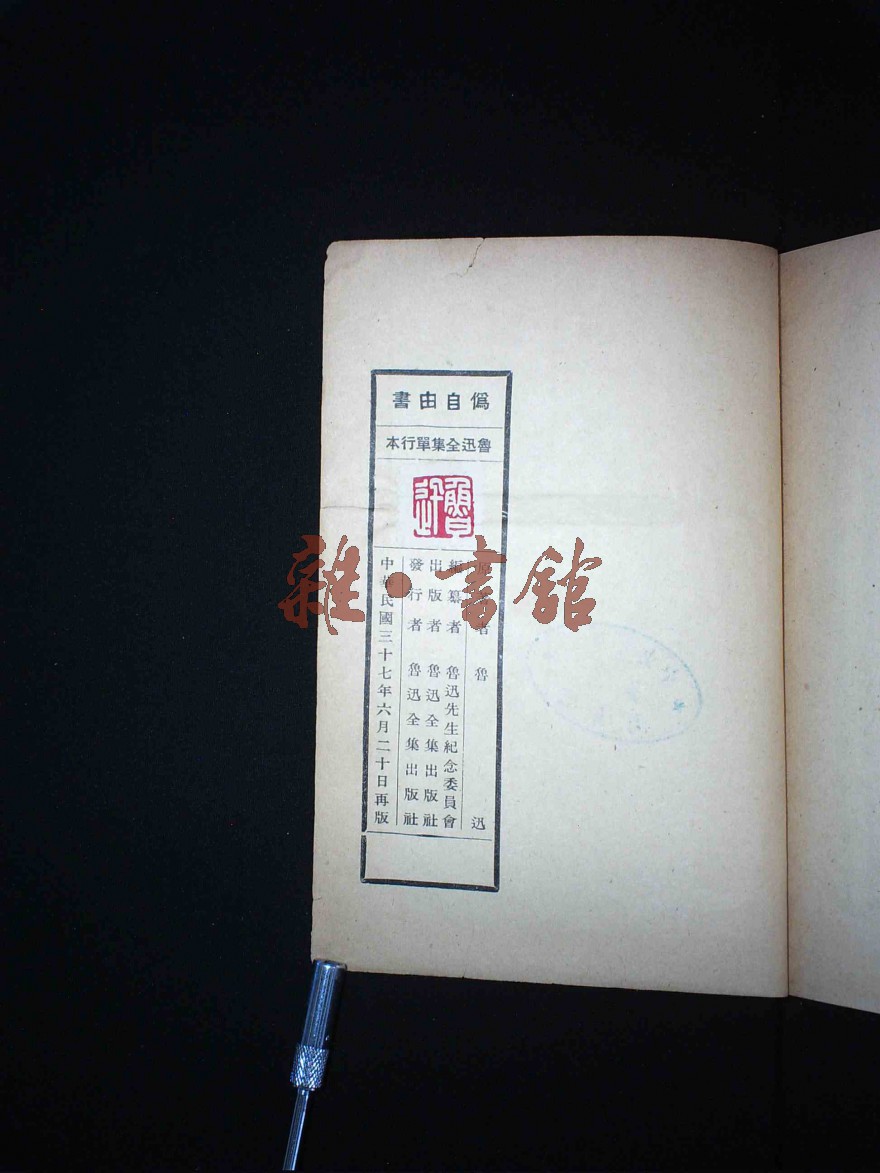 僞自由書
魯迅全集單行本
魯迅
原著者 魯迅
編纂者 魯迅先生紀念委員會
出版者 魯迅全集出版社
發行者 魯迅全集出版社
中華民國三十七年六月二十日再版
雜·書館